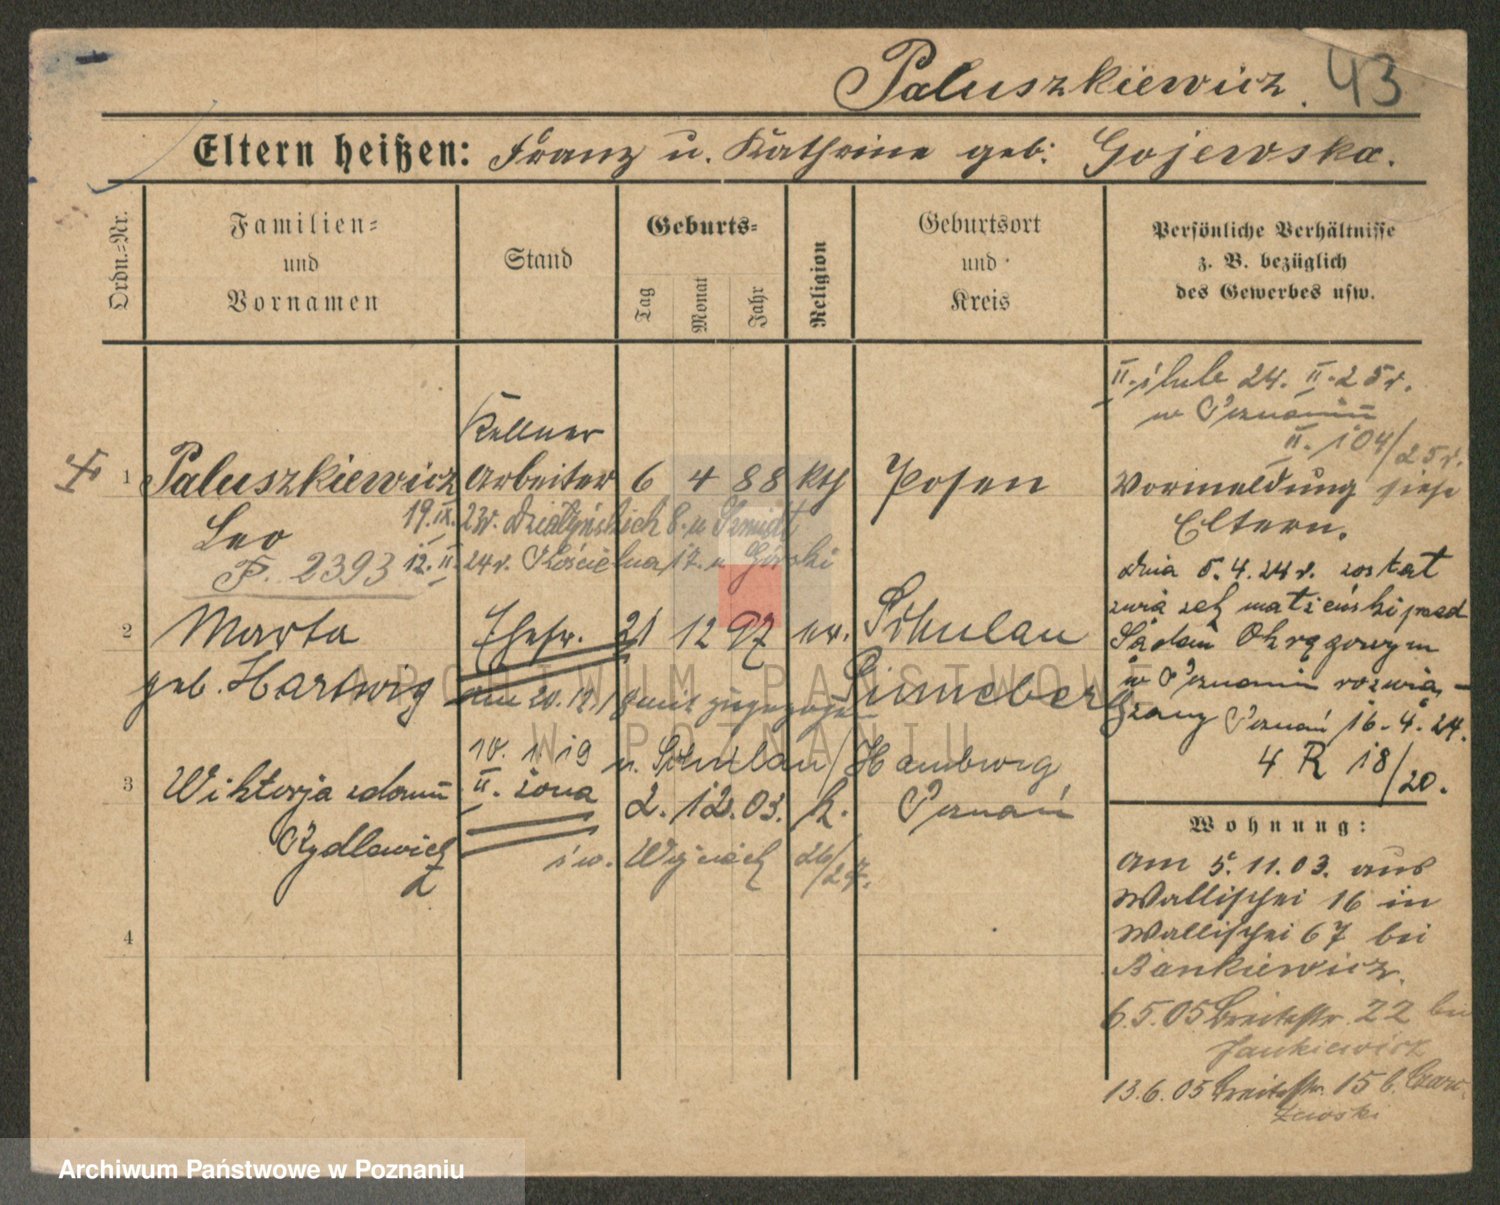 Paluszkiewicz. 43
Eltern heißen: Franz u. Kathrine geb: Gojewska.
Ordn.-Nr.
Familien-
und
Vornamen
Stand
Geburts-
Tag
Monat
Jahr
Religion
Geburtsort
und
Kreis
Persönliche Verhältnisse
z. B. bezüglich
des Gewerbes usw.
II. ślub 24. II. 25r.
w Poznaniu
II. 104/25r.
Kellner
1 Paluszkiewicz Arbeiter 6 4 88 kth Posen
Leo
19. IX. 23r. Działyńskich 8. u
F. 2393 12. II. 24r. Kościelna 17. u Górski
Vormeldung siehe
Eltern.
dnia 5.4.24r. został
związek małżeński przed
Sądem Okręgowym
w Poznaniu rozwią-
zany Poznań 16.4.24.
4 R 18/20.
2 Marta Ehefr. 21 12 97 ev. Schulau
geb. Hartwig Pinneberg
am 20.12.18 mit zugezogen
10. 1. 19 n. Schulau / Hamburg
3 Wiktorja z domu II. żona 2. 12. 03. k. Poznań
Rydlewicz
26/27.
4
Wohnung:
am 5. 11. 03. aus
Wallischei 16 in
Wallischei 67 bei
Bankiewicz.
6.5.05 Breitestr. 22 bei
Jankiewicz
13.6.05 Breitestr. 15 b.
ARCHIWUM PAŃSTWOWE
W POZNANIU
Archiwum Państwowe w Poznaniu